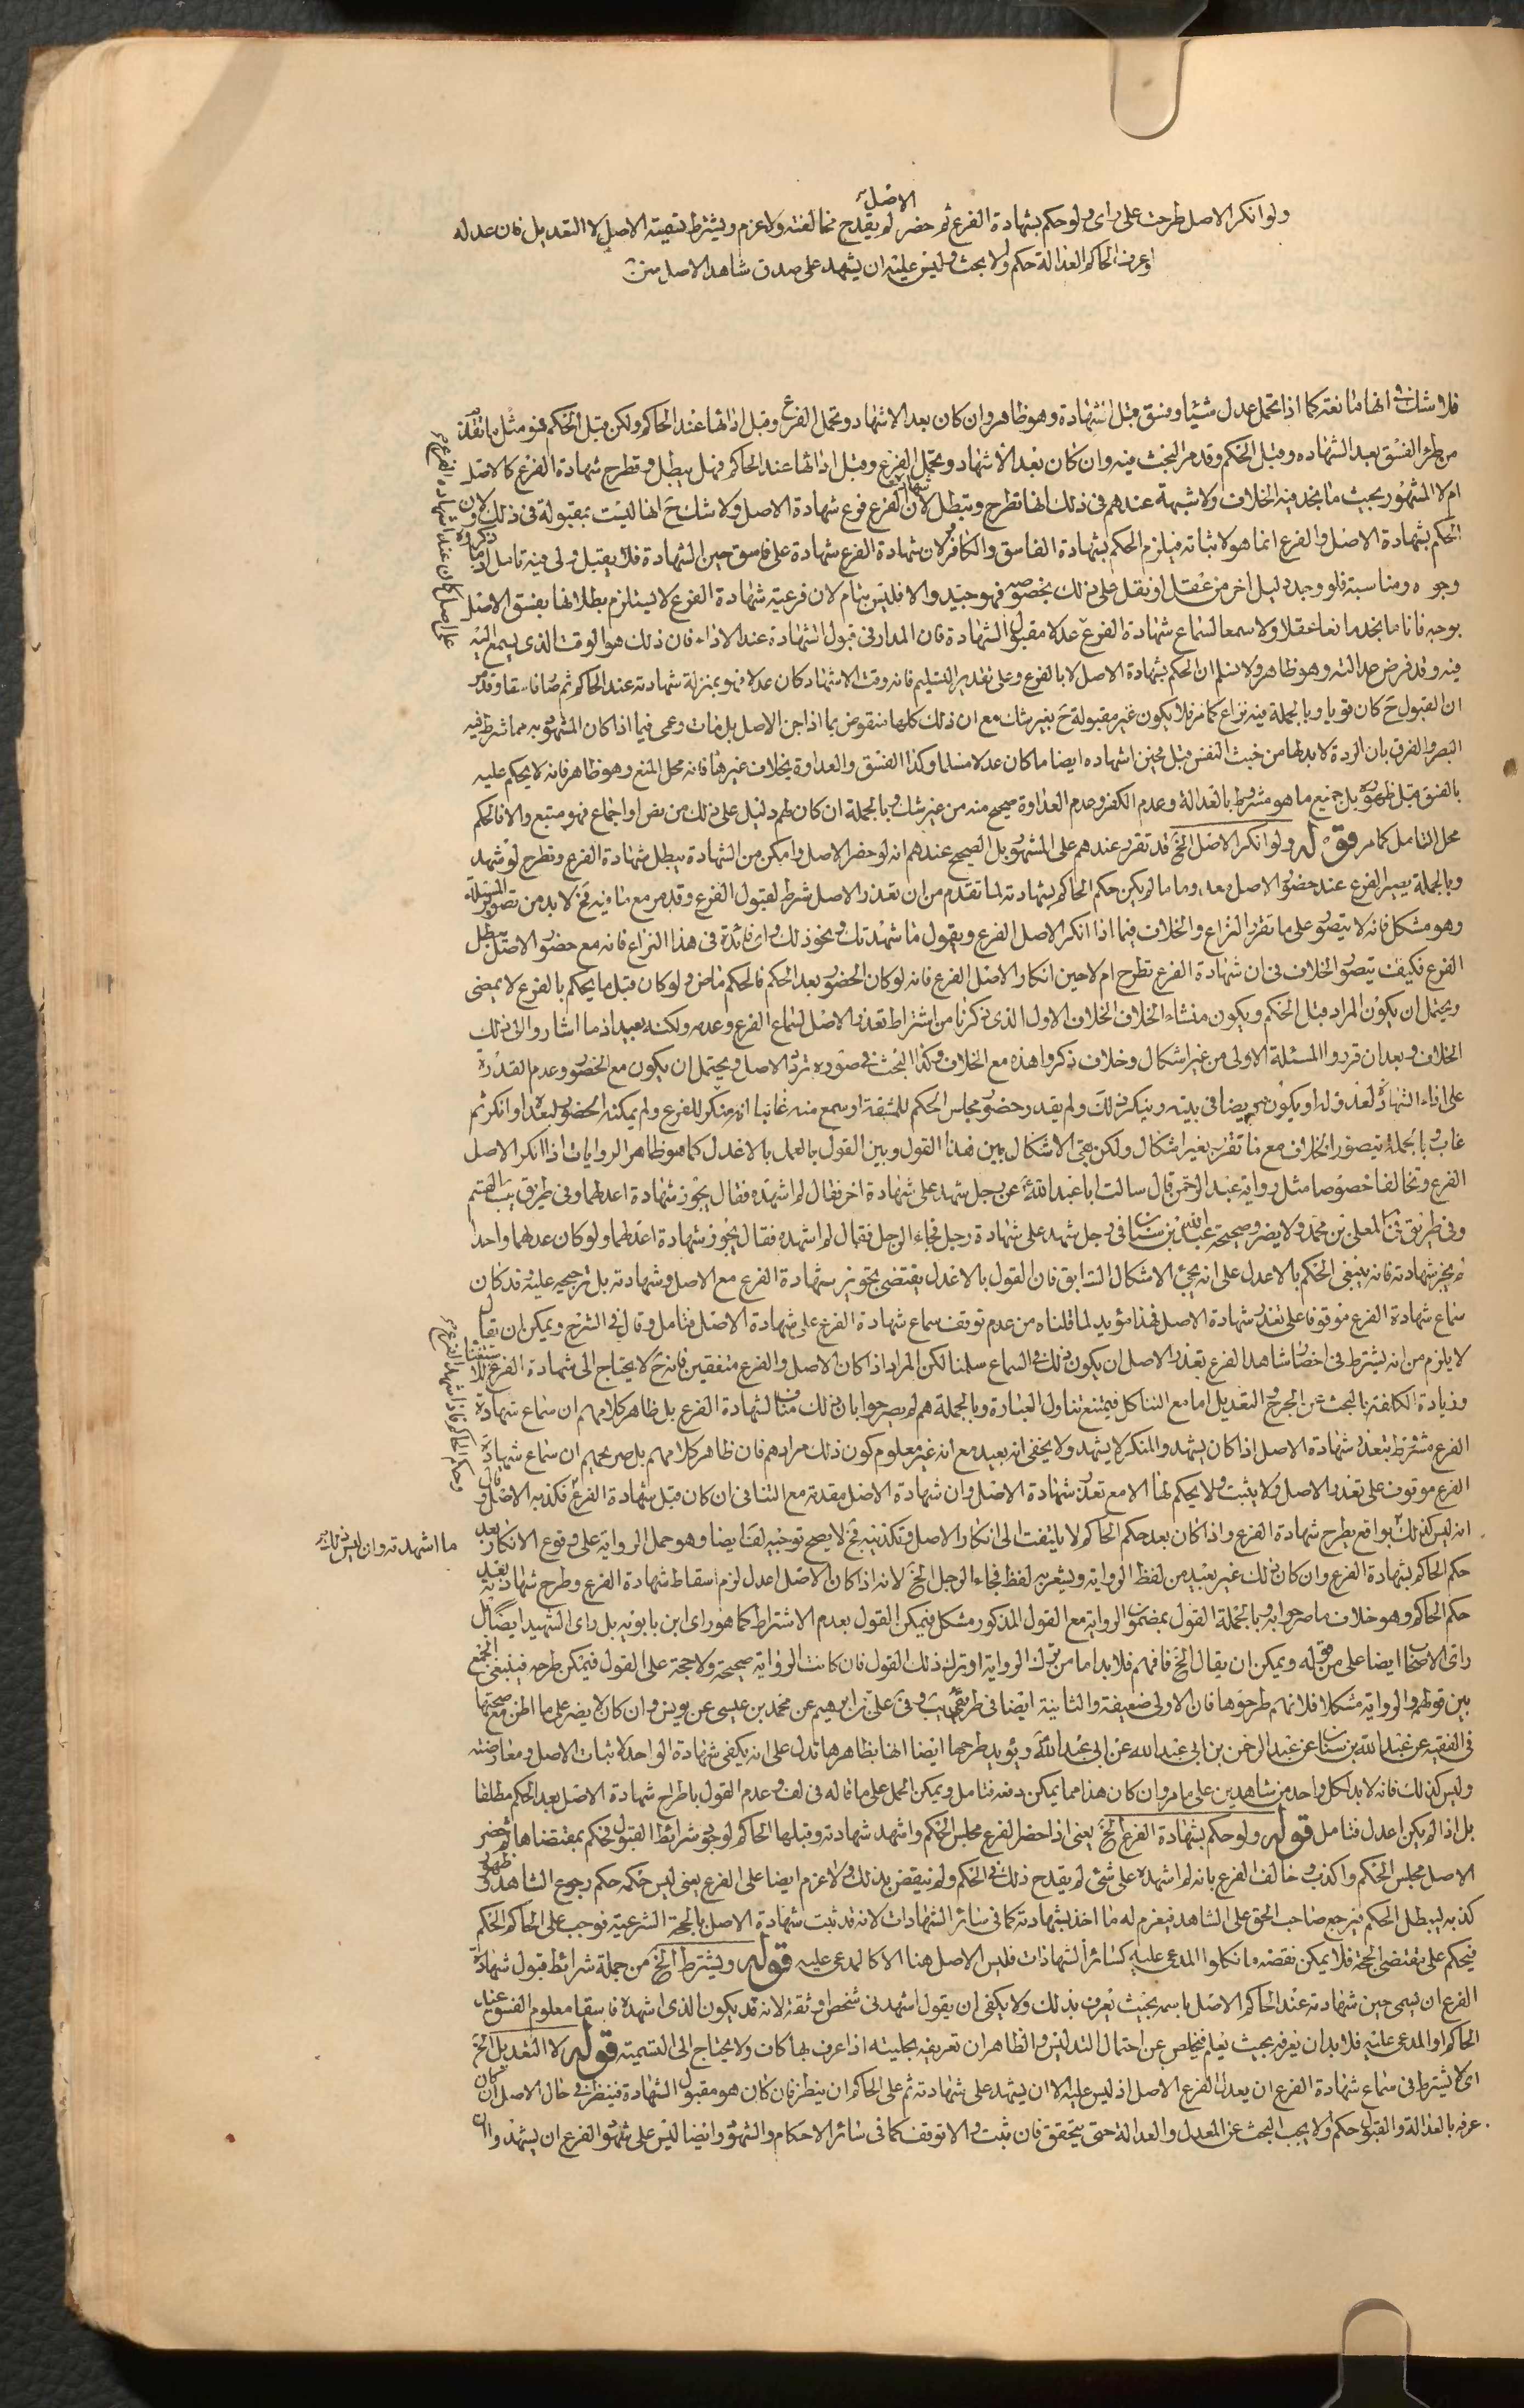 الاصل
ولو انكر الاصل طرحت على راى ولو حكم بشهادة الفرع ثم حضر لم يقدح مخالفته ولا غرم ويشترط تسمية الاصل لا التعديل فان عدله
او عرف الحاكم العدالة حكم والا بحث وليس عليه ان يشهد على صدق شاهد الاصل
فلا شك فى انها مانعة كما اذا تحمل عدل شيئا وفسق قبل الشهادة وهو ظاهر وان كان بعد الاشهاد وتحمل الفرع وقبل ادائها عند الحاكم ولكن قبل الحكم فهو مثل ما تقدم
من طرء الفسق بعد الشهادة وقبل الحكم وقد مر البحث فيه وان كان بعد الاشهاد وتحمل الفرع وقبل ادائها عند الحاكم فهل يبطل وتطرح شهادة الفرع كالاصل
ام لا المشهور بحيث ما نجد فيه الخلاف ولا شبهة عندهم فى ذلك انها تطرح وتبطل لان الفرع فرع شهادة الاصل ولا شك ح انها ليست بمقبولة فى ذلك ولان
الحكم بشهادة الاصل والفرع انما هو لاثباته فيلزم الحكم بشهادة الفاسق والكافر ولان شهادة الفرع شهادة على فاسق حين الشهادة فلا يقبل ولى فيه تامل اذ ما ذكروه
وجوه ومناسبة فلو وجد دليل اخر من عقل او نقل على ذلك بخصوصه فهو جيد والا فليس بتام لان فرعية شهادة الفرع لا يستلزم بطلانها بفسق الاصل
بوجه فانا ما نجد مانعا عقلا ولا سمعا لسماع شهادة الفرع عدلا مقبول الشهادة فان المدار فى قبول الشهادة عند الاداء فان ذلك هو الوقت الذى يسمع اليه
فيه وقد فرض عدالته وهو ظاهر ولا نسلم ان الحكم بشهادة الاصل لا بالفرع وعلى تقدير التسليم فانه وقت الاشهاد كان عدلا فهو بمنزلة شهادته عند الحاكم ثم صار فاسقا وقد مر
ان القبول ح كان قويا وبالجملة فيه نزاع كما مر فلا يكون غير مقبولة ح بغير شك مع ان ذلك كلها منقوض بما اذا جن الاصل بل مات وعمى فيما اذا كان المشهود به مما شرط فيه
البصر والفرق بان الردة لا بد لها من خبث النفس قبل فحين اشهاده ايضا ما كان عدلا مسلما وكذا الفسق والعداوة بخلاف غيرها فانه محل المنع وهو ظاهر فانه لا يحكم عليه
بالفسق قبل ظهوره بل جميع ما هو مشروط بالعدالة وعدم الكفر وعدم العداوة صحيح منه من غير شك وبالجملة ان كان لهم دليل على ذلك من نص او اجماع فهو متبع والا فالحكم
محل التامل كما مر قوله ولو انكر الاصل الخ قد تقرر عندهم على المشهور بل الصحيح عندهم انه لو حضر الاصل وامكن من الشهادة يبطل شهادة الفرع وتطرح لو شهد
وبالجملة يصير الفرع عند حضور الاصل وما لم يكن حكم الحاكم بشهادته لما تقدم من ان تعذر الاصل شرط لقبول الفرع وقد مر مع ما فيه فح لا بد من تصوير المسئلة
وهو مشكل فانه لا يتصور على ما تقرر النزاع والخلاف فيما اذا انكر الاصل الفرع ويقول ما شهدتك ونحو ذلك واى فائدة فى هذا النزاع فانه مع حضور الاصل يبطل
الفرع فكيف يتصور الخلاف فى ان شهادة الفرع تطرح ام لا حين انكار الاصل الفرع فانه لو كان الحضور بعد الحكم فالحكم ماض ولو كان قبل ما يحكم بالفرع لا يمضى
ويحتمل ان يكون المراد قبل الحكم ويكون منشاء الخلاف الخلاف الاول الذى ذكرنا من اشتراط تعذر الاصل لسماع الفرع وعدمه ولكنه بعيد اذ ما اشاروا الى ذلك
الخلاف وبعد ان قرروا المسئلة الاولى من غير اشكال وخلاف ذكروا هذه مع الخلاف وكذا البحث فى صورة تردد الاصل ويحتمل ان يكون مع الحضور وعدم القدرة
على اداء الشهادة لعذر له او يكون مريضا فى بيته وينكر ذلك ولم يقدر حضور مجلس الحكم للمشقة او سمع منه غائبا انه منكر للفرع ولم يمكنه الحضور لبعده او انكر ثم
غاب وبالجملة يتصور الخلاف مع ما تقرر بغير اشكال ولكن بقى الاشكال بين هذا القول وبين القول بالعمل بالاعدل كما هو ظاهر الروايات اذا انكر الاصل
الفرع وتخالفا خصوصا مثل رواية عبد الرحمن قال سالت ابا عبد الله ع عن رجل شهد على شهادة اخر فقال لم اشهده فقال يجوز شهادة اعدلهما وفى طريق يب القسم
وفى طريق فى المعلى بن محمد ولا يضر وصحيحة عبد الله بن سنان فى رجل شهد على شهادة رجل فجاء الرجل فقال لم اشهده فقال يجوز شهادة اعدلهما ولو كان عدلهما واحدا
لم يجز شهادته فانه ينبغى الحكم بالاعدل على انه يجئ الاشكال السابق فان القول بالاعدل يقتضى تجويز شهادة الفرع مع الاصل وشهادته بل ترجيحه عليه وقد كان
سماع شهادة الفرع موقوفا على تعذر شهادة الاصل فهذا مؤيد لما قلناه من عدم توقف سماع شهادة الفرع على شهادة الاصل فتامل وقال فى الشرح ويمكن ان يقال
لا يلزم من انه يشترط فى احضار شاهد الفرع تعذر الاصل ان يكون ذلك فى السماع سلمنا لكن المراد اذا كان الاصل والفرع متفقين فانه ح لا يحتاج الى شهادة الفرع للاستغناء
وزيادة الكلفة بالبحث عن الجرح والتعديل اما مع التناكل فيمتنع تناول العبارة وبالجملة هم لم يصرحوا بان ذلك مناف لشهادة الفرع بل ظاهر كلامهم ان سماع شهادة
الفرع مشترط بتعذر شهادة الاصل اذا كان يشهد والمنكر لا يشهد ولا يخفى انه بعيد مع انه غير معلوم كون ذلك مرادهم فان ظاهر كلامهم بل صريحهم ان سماع شهادة
الفرع موقوف على تعذر الاصل ولا يثبت ولا يحكم لها الا مع تعذر شهادة الاصل وان شهادة الاصل مقدمة مع التنافى ان كان قبل شهادة الفرع فكذبه الاصل وقال
انه ليس كذلك بواقع يطرح شهادة الفرع واذا كان بعد حكم الحاكم لا يلتفت الى انكار الاصل وتكذيبه فح لا يصح توجيه لف ايضا وهو حمل الرواية على وقوع الانكار بعد
حكم الحاكم بشهادة الفرع وان كان ذلك غير بعيد من لفظ الرواية ويشعر به لفظ فجاء الرجل الخ لانه اذا كان الاصل اعدل لزم اسقاط شهادة الفرع وطرح شهادته بعد
حكم الحاكم وهو خلاف ما صرحوا به وبالجملة القول بمضمون الرواية مع القول المذكور مشكل فيمكن القول بعدم الاشتراط كما هو راى ابن بابويه بل راى الشهيد ايضا بل
راى الاصحاب ايضا على من قوله ويمكن ان يقال الخ فافهم فلا بد اما من ترك الرواية او ترك ذلك القول فان كانت الرواية صحيحة ولا حجة على القول فيمكن طرحه فينبغى الجمع
بين قولهم والرواية مشكلا فلانهم طرحوها فان الاولى ضعيفة والثانية ايضا فى طريقى يب وفى على بن ابرهيم عن محمد بن عيسى عن يونس وان كان لا يضر على ما اظن مع صحتها
فى الفقيه عن عبد الله بن سنان عن عبد الرحمن بن ابى عبد الله عن ابى عبد الله ع ويؤيد طرحها ايضا انها بظاهرها تدل على انه يكفى شهادة الواحد لاثبات الاصل ومعارضته
وليس كذلك فانه لا بد لكل واحد من شاهدين على ما مر وان كان هذا مما يمكن دفعه فتامل ويمكن الحمل على ما قاله فى لف وعدم القول باطراح شهادة الاصل بعد الحكم مطلقا
بل اذا لم يكن اعدل فتامل قوله ولو حكم بشهادة الفرع الخ يعنى اذا حضر الفرع مجلس الحكم واشهد شهادته وقبلها الحاكم لوجود شرائط القبول فحكم بمقتضاها ثم حضر
الاصل مجلس الحكم واكذب وخالف الفرع بانه لم اشهده على شئ لم يقدح ذلك فى الحكم ولم ينقض بذلك ولا غرم ايضا على الفرع يعنى ليس حكمه حكم رجوع الشاهد وظهور
كذبه ليبطل الحكم فيرجع صاحب الحق على الشاهد فيغرم له ما اخذ بشهادته كما فى سائر الشهادات لانه قد ثبت شهادة الاصل بالحجة الشرعية فوجب على الحاكم الحكم
فيحكم على مقتضى الحجة فلا يمكن نقضه بانكار المدعى عليه كسائر الشهادات فليس الاصل هنا الا كالمدعى عليه قوله ويشترط الخ من جملة شرائط قبول شهادة
الفرع ان يسمى حين شهادته عند الحاكم الاصل باسمه بحيث يعرف بذلك ولا يكفى ان يقول اشهدنى شخص وثقة لانه قد يكون الذى اشهده فاسقا معلوم الفسق عند
الحاكم او المدعى عليه فلا بد ان يعرفه بحيث يعلم فيخلص عن احتمال التدليس والظاهر ان تعريفه بحليته اذا عرف بها كاف ولا يحتاج الى التسمية قوله لا التعديل الخ
اى لا يشترط فى سماع شهادة الفرع ان يعدل الفرع الاصل اذ ليس عليه الا ان يشهد على شهادته ثم على الحاكم ان ينظر فان كان هو مقبول الشهادة فينظر فى حال الاصل ان كان
عرفه بالعدالة والقبول حكم ولا يجب البحث عن المعدل والعدالة حتى يتحقق فان ثبت والا توقف كما فى سائر الاحكام والشهود وايضا ليس على شهود الفرع ان يشهدوا ان
ما اشهدته وان ليس كذلك